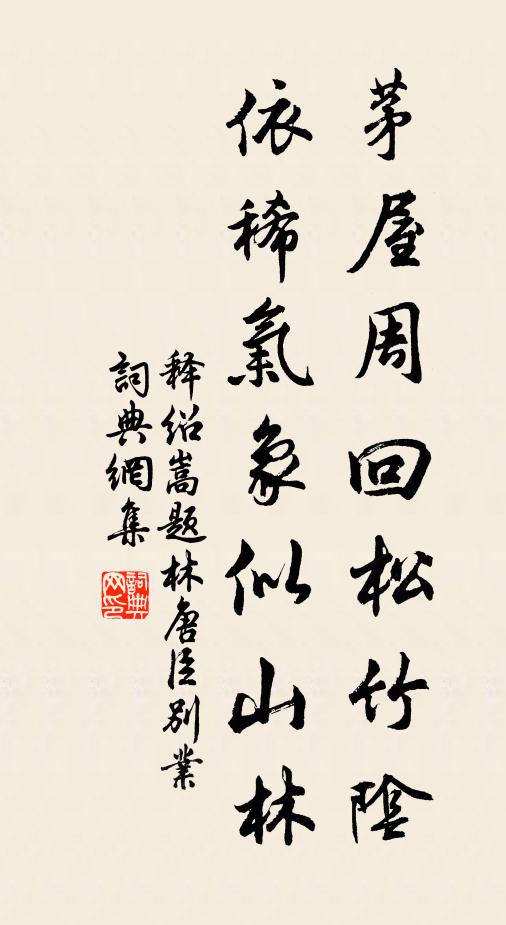 茅屋周回松竹陰
依稀氣象似山林
释绍嵩题林唐臣别業
詞典網集
詞典網印